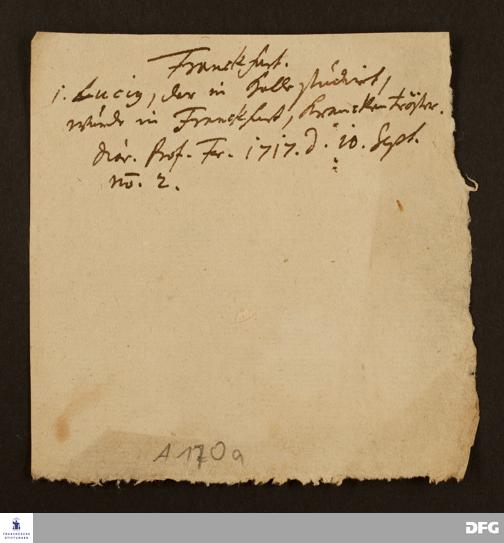 Franckfurt.
1. Lucius, der in Halle studiert,
wurde in Franckfurt, Krancken tröster.
diar. Prof. Fr. 1717. d. 10. Sept.
no. 2.
A 170a
FRANCKESCHE STIFTUNGEN
DFG